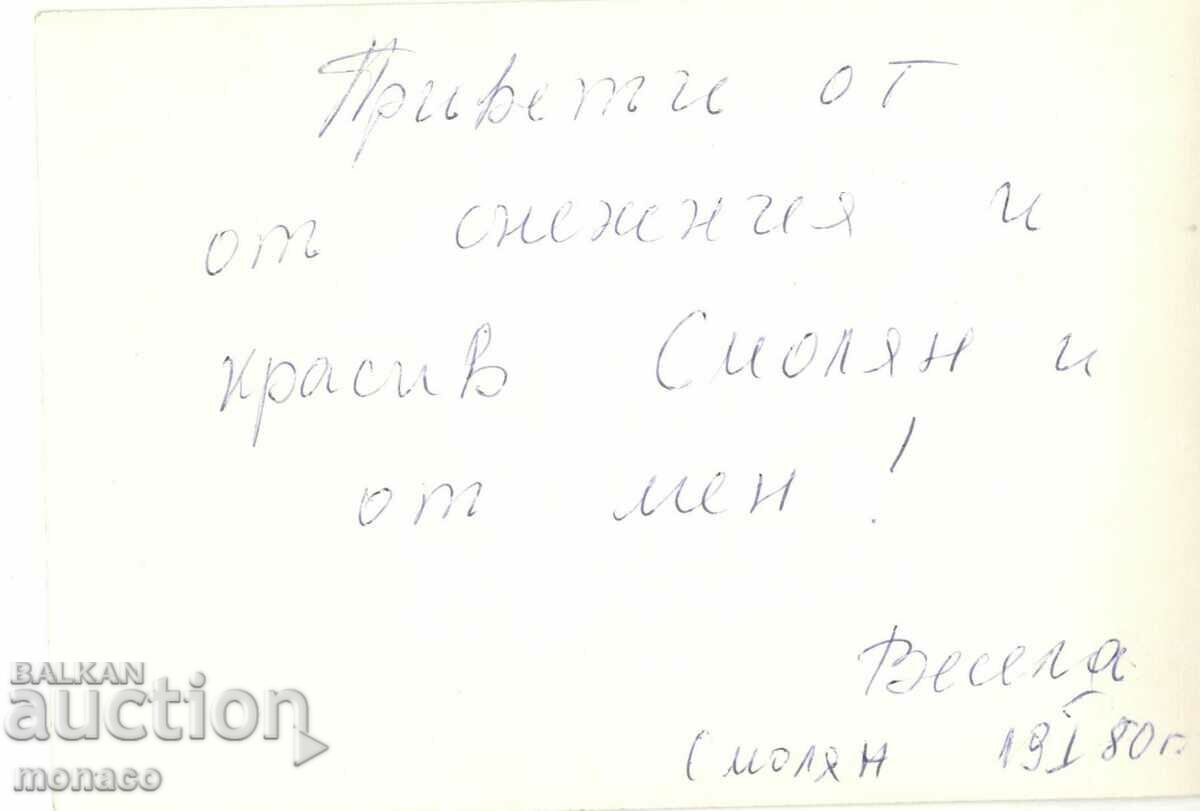 Привети от
от снежния и
красив Смолян и
от мен!
Весела
Смолян 19 I 80 г.
BALKAN
auction
monaco